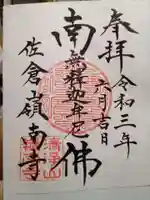 奉拝
令和三年
六月吉日
南無釋迦牟尼佛
佐倉嶺南寺